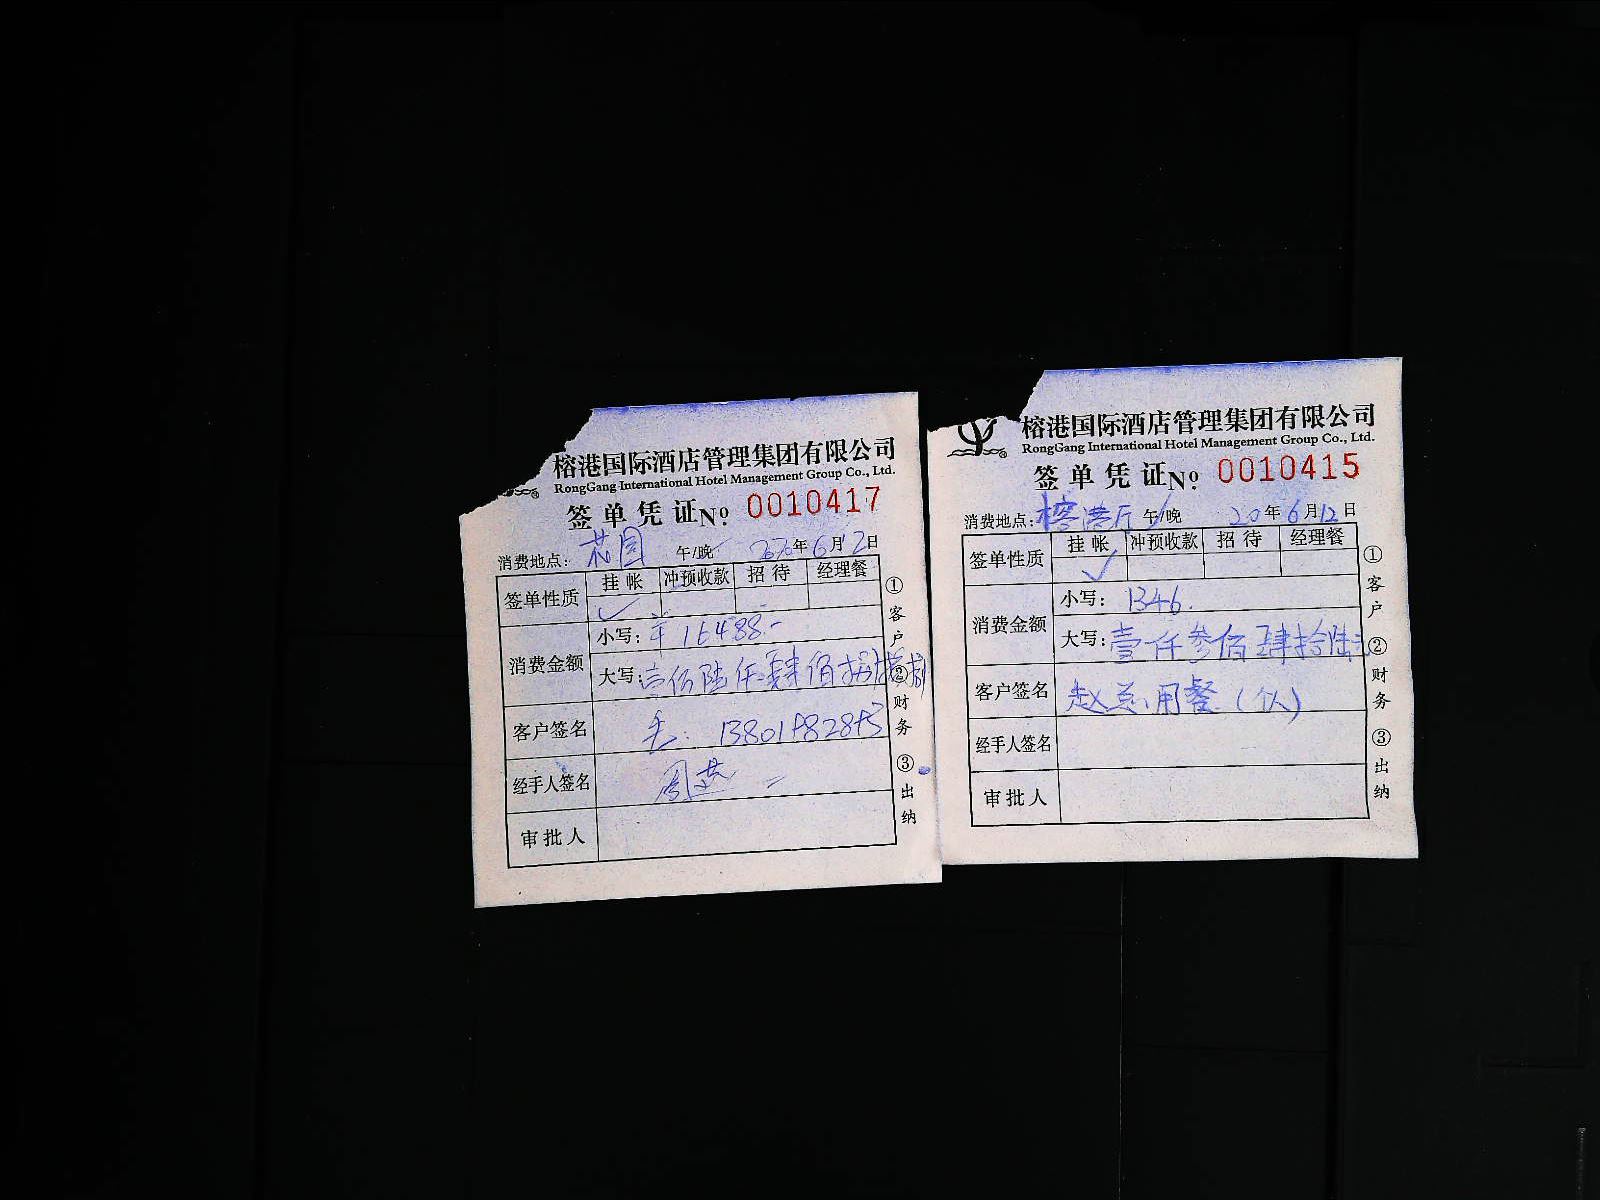 榕港国际酒店管理集团有限公司
RongGang International Hotel Management Group Co., Ltd.
签单凭证№ 0010417
消费地点: 花园 午/晚 2020年6月12日
签单性质 挂帐 冲预收款 招待 经理餐
消费金额
小写: ¥16488.-
大写: 壹 陆仟肆佰捌拾捌
客户签名
经手人签名
审批人
①客户 ②财务 ③出纳
榕港国际酒店管理集团有限公司
RongGang International Hotel Management Group Co., Ltd.
签单凭证№ 0010415
消费地点: 榕港厅 午/晚 20年6月12日
签单性质 挂帐 冲预收款 招待 经理餐
消费金额
小写: 1346.
大写: 壹仟叁佰肆拾陆元
客户签名 赵总用餐
经手人签名
审批人
①客户 ②财务 ③出纳